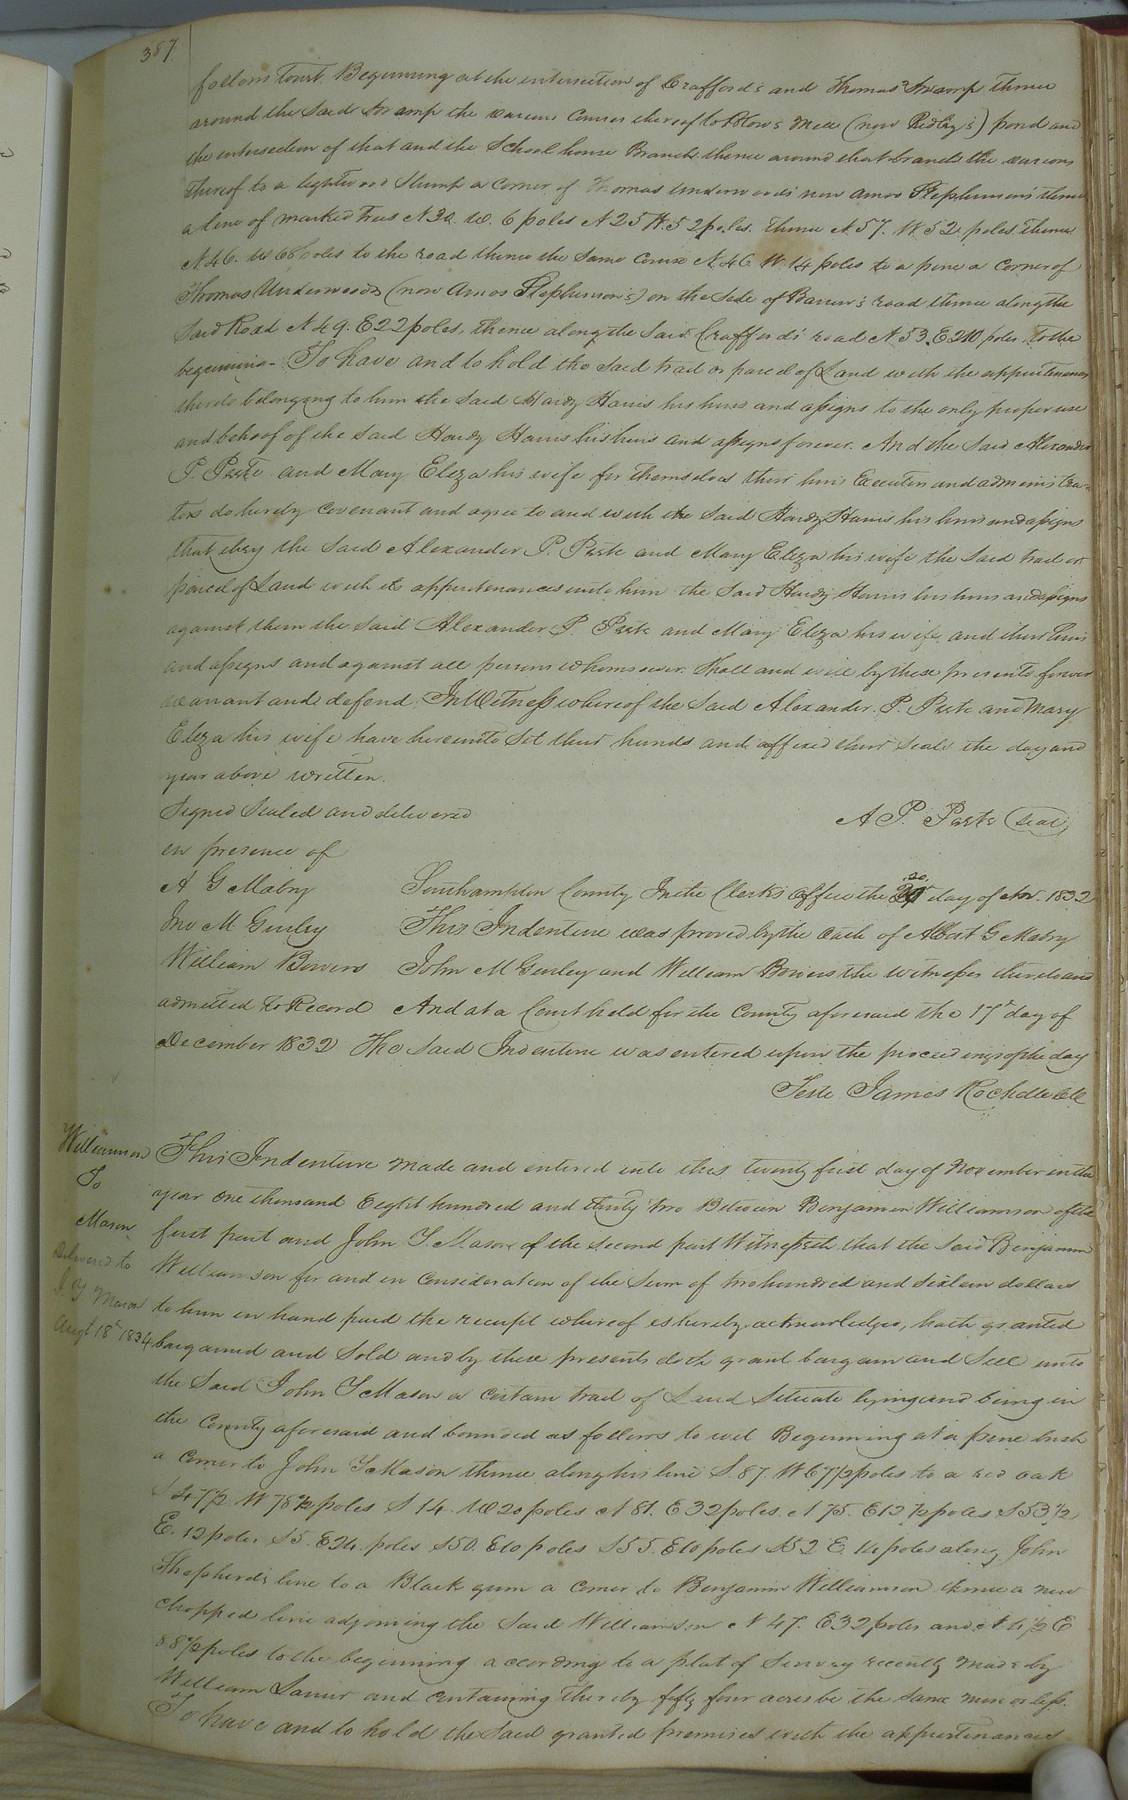 387.
follows Towit Beginning at the intersection of Crafford's and Thomas' Swamp thence
around the Said Swamp the various Courses thereof to Blow's Mill (now Ridley's) pond and
the intersection of that and the School house Branch thence around that branch the various
thereof to a lightwood Stump a Corner of Thomas Underwoods now Amos Stephenson's thence
a line of marked Trees N 32. W. 6 poles N 25 W. 52 poles. thence N. 57. W 52 poles. thence
N 46. W 68 poles to the road thence the Same Course N. 46 W. 14 poles to a pine a Corner of
Thomas Underwoods (now Amos Stephenson's) on the Side of Barrow's road thence along the
Said Road N 49. E 22 poles, thence along the Said Crafford's road N 53. E 210 poles to the
beginning- To have and to hold the Said tract or parcel of Land with the appurtenances
thereto belonging to him the Said Hardy Harris his heirs and assigns to the only proper use
and behoof of the Said Hardy Harris his heirs and assigns forever. And the Said Alexander
P. Peete and Mary Eliza his wife for themselves their heirs Executors and administra-
tors do hereby Covenant and agree to and with the Said Hardy Harris his heirs and assigns
that they the Said Alexander P. Peete and Mary Eliza his wife the Said tract or
parcel of Land with its appurtenances unto him the Said Hardy Harris his heirs and assigns
against them the Said Alexander P. Peete and Mary Eliza his wife and their heirs
and assigns and against all persons whomsoever Shall and will by these presents forever
warrant and defend. In Witness whereof the Said Alexander. P. Peete and Mary
Eliza his wife have hereunto Set their hands and affixed their Seals the day and
year above written.
Signed Sealed and delivered
A P. Peete (Seal)
in presence of
A G Mabry Southampton County In the Clerk's office the day of Nov. 1832
Jno M Gurley This Indenture was proved by the Oath of Albert G Mabry
William Bowers John M Gurley and William Bowers the witnesses thereto and
admitted to Record And at a Court held for the County aforesaid the 17th day of
December 1832 The Said Indenture was entered upon the proceedings of the day
Teste James Rochelle Clk
Williamson
To
Mason
Delivered to
J. Y Mason
Augt 18th 1834
This Indenture made and entered into this twenty first day of November in the
year one thousand Eight hundred and thirty two Between Benjamin Williamson of the
first part and John Y. Mason of the Second part Witnesseth that the Said Benjamin
Williamson for and in Consideration of the Sum of two hundred and Sixteen dollars
to him in hand paid the receipt whereof is hereby acknowledged, hath granted
bargained and Sold and by these presents doth grant bargain and Sell unto
the Said John Y Mason a Certain tract of Land Situate lying and being in
the County aforesaid and bounded as follows to wit Beginning at a pine bush
a Corner to John Y Mason thence along his line S. 87. W 67½ poles to a red oak
S 47½. W 78½ poles S 14. W 20 poles N 81. E 32 poles. N 75. E 12½ poles S 53½
E. 12 poles S 5. E 24. poles S 50. E 10 poles S 55. E 10 poles S 52 E. 14 poles along John
Shepherd's line to a Black gum a Corner to Benjamin Williamson thence a new
chopped line adjoining the Said Williamson N 47. E 32 poles and N 4½ E
88½ poles to the beginning according to a plat of Survey recently made by
William Lanier and Containing thereby fifty four acres be the Same more or less.
To have and to hold the Said granted premises with the appurtenances